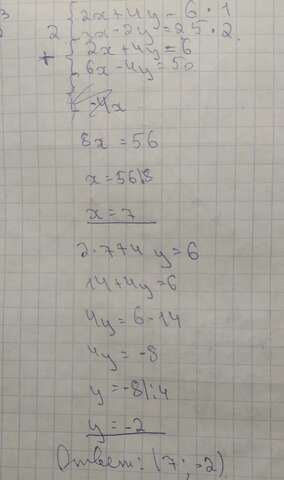 3
2 { 2x+4y=6 · 1
3x-2y=25 · 2
+ { 2x+4y=6
6x-4y=50
-4x
8x = 56
x = 56:8
x = 7
2·7+4y=6
14+4y=6
4y=6-14
4y=-8
y=-8:4
y=-2
Ответ: (7; -2)